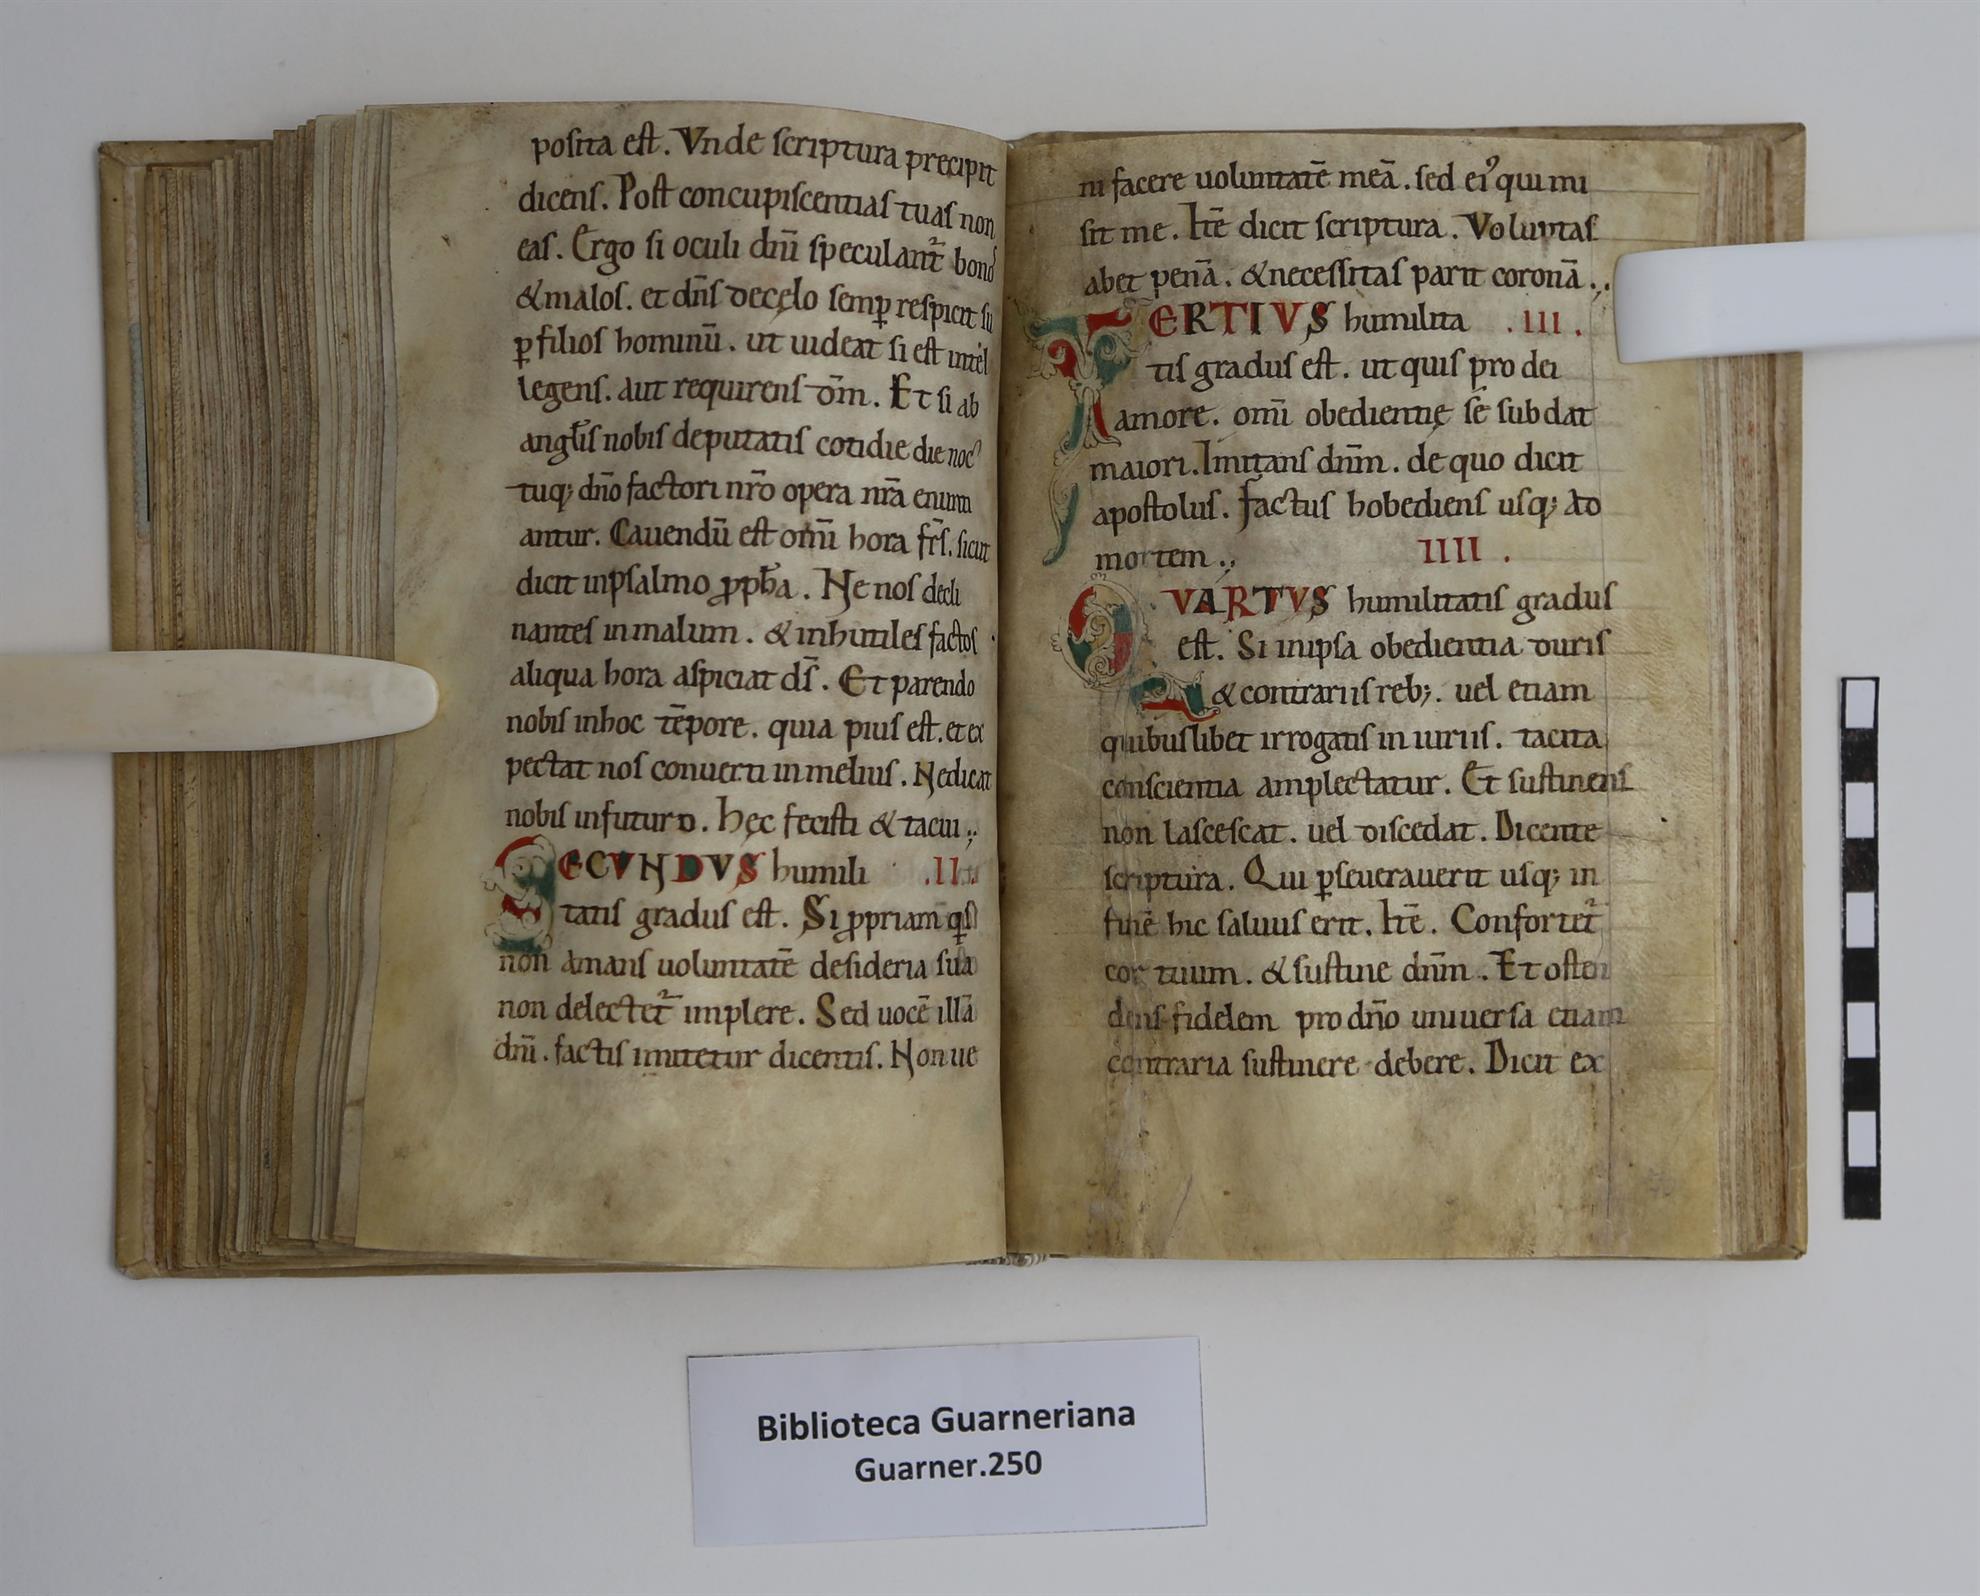 posita est. Vnde scriptura precipit
dicens. Post concupiscentias tuas non
eas. Ergo si oculi dñi speculant̃ bonos
& malos. et dñs de cęlo semꝑ respicit su
ꝑ filios hominū. ut uideat si est intel
legens. aut requirens dm̄. Et si ab
anglis nobis deputatis cotidie die noc
tuq; dño factori nr̃o opera nr̃a enunti
antur. Cauendū est omī hora fr̃s. sicut
dicit in psalmo ꝓpħa. Ne nos decli
nantes in malum. & inhutiles factos
aliqua hora aspiciat ds̄. Et parendo
nobis in hoc tēpore. quia pius est. et ex
pectat nos conuerti in melius. Ne dicat
nobis in futuro. hęc fecisti & tacui.,
SECVNDVS humili .II.
tatis gradus est. Si ꝓpriam qs
non amans uoluntatē desideria sua
non delectet̃ implere. Sed uocē illā
dñi. factis imitetur dicentis. Non ue
ni facere uoluntatē meā. sed ei' qui mi
sit me. Itē dicit scriptura. Voluptas
abet penā. & necessitas parit coronā.,
TERTIVS humilita .III.
tis gradus est. ut quis pro dei
amore. omī obedientię se subdat
maiori. Imitans dñm. de quo dicit
apostolus. factus hobediens usq; ad
mortem., IIII.
QVARTVS humilitatis gradus
est. Si in ipsa obedientia duris
& contrariis reb;. uel etiam
quibuslibet irrogatis iniuriis. tacita
conscientia amplectatur. Et sustinens
non lascescat. uel discedat. Dicente
scriptura. Qui ꝑseuerauerit usq; in
finē hic saluus erit. Itē. Confortet̃
cor tuum. & sustine dñm. Et osten
dens fidelem pro dño uniuersa etiam
contraria sustinere debere. Dicit ex
Biblioteca Guarneriana
Guarner.250